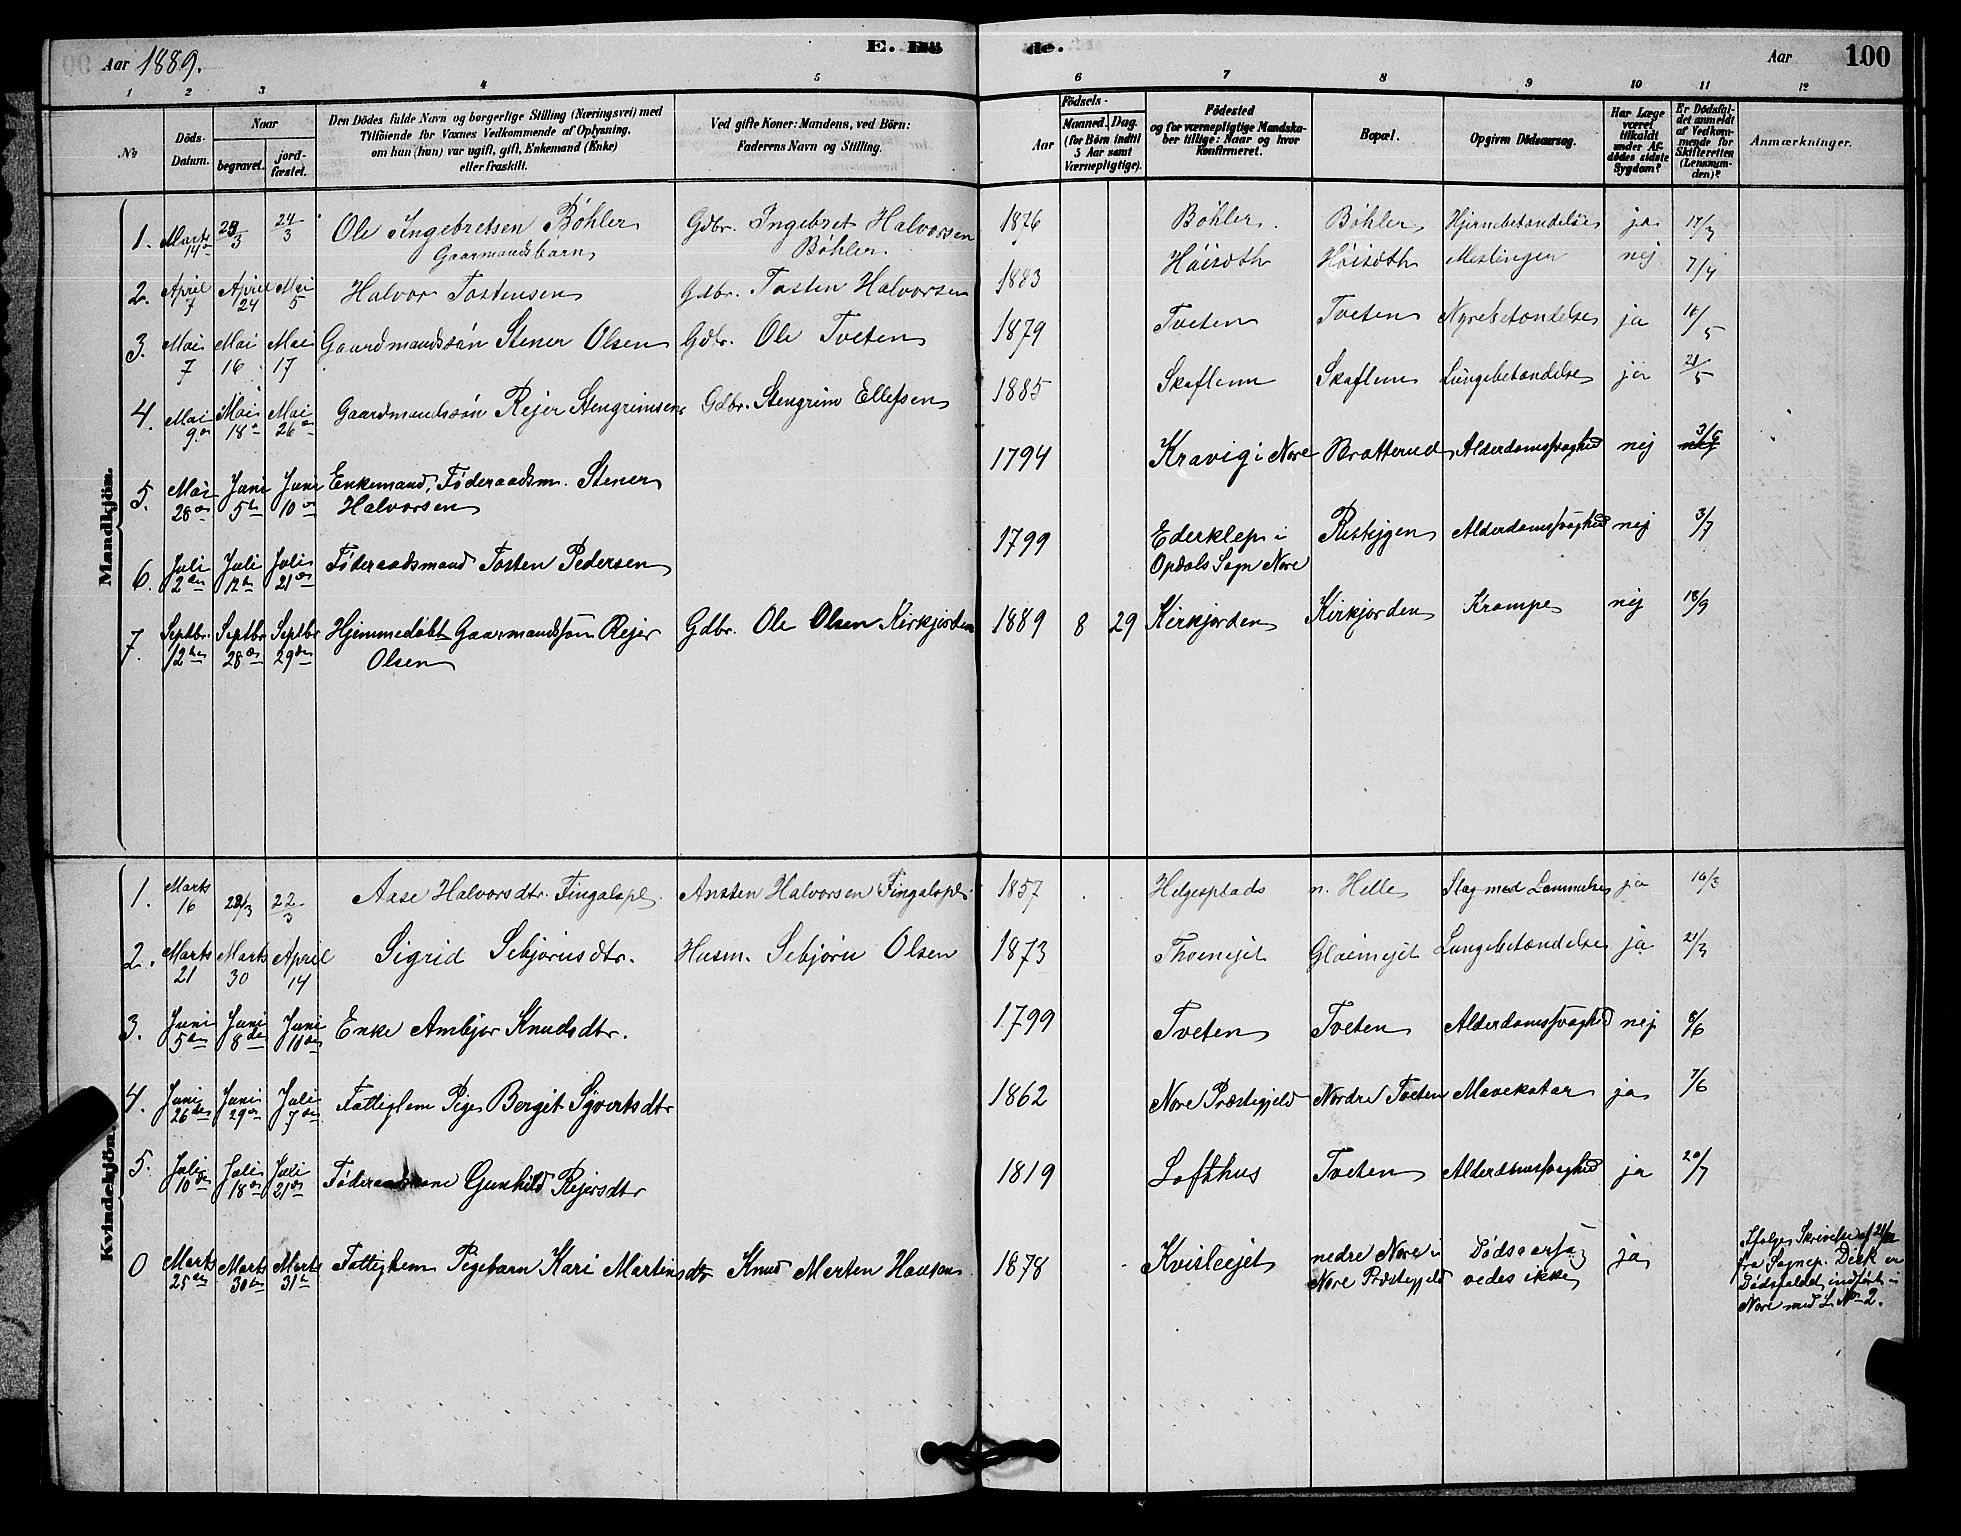 Aar 1889. E. Dö de. Aar 100
1 2 3 4 5 6 7 8 9 10 11 12
No
Döds-Datum.
Naar
begravet.
jord-fæstet.
Den Dödes fulde Navn og borgerlige Stilling (Næringsvei) med
Tilföiende for Voxnes Vedkommende af Oplysning,
om han (hun) var ugift, gift, Enkemand (Enke)
eller fraskilt.
Ved gifte Koner: Mandens, ved Börn:
Faderens Navn og Stilling.
Födsels-
Aar
Maaned. Dag.
(for Börn indtil
5 Aar samt
Værnepligtige).
Födested
og for værnepligtige Mandska-
ber tillige: Naar og hvor
konfirmeret.
Bopæl.
Opgiven Dödsaarsag.
Har Læge
været
tilkaldt
under Af-
dödes sidste
Sygdom?
Er Dödsfal-
det anmeldt
af Vedkom-
mende for
Skifteretten
(Lensman-
den)?
Anmærkninger.
Mandkjön.
1. Marts 14 23/3 24/3 Ole Ingebretsen Bøhler Gdbr. Ingebret Halvorsen 1876 Bøhler Bøhler Hjernebetændelse ja 17/3
Gaarmandsbarn Bøhler
2. April 7 April 24 Mai 5 Halvor Tostensen Gdbr. Tosten Halvorsen 1883 Høisæth Høisæth Meslinger nej 7/4
3. Mai 7 Mai 16 Mai 17 Gaardmandssøn Stener Olsen Gdbr. Ole Tveten 1879 Tveten Tveten Nyrebetændelse ja 16/5
4. Mai 9 Mai 18 Mai 26 Gaardmandssøn Rejer Stengrimsen Gdbr. Stengrim Ellefsen 1885 Skaflem Skaflem Lungebetændelse ja 21/5
5. Mai 28 Juni 5 Juni 10 Enkemand, Føderaadsm. Stener 1794 Kravig i Nore Bratterud Alderdomssvaghed nej 3/6
Halvorsen
6. Juli 2den Juli 12 Juli 21 Føderaadsmand Tosten Pedersen 1799 Ederklep i Alderdomssvaghed nej 3/7
Opdals Sogn Nore
7. Septbr. 12 Septbr 28 Septbr 29 Hjemmedøbt Gaarmandssøn Rejer Gdbr. Ole Olsen Kirkjorden 1889 8 29 Kirkjorden Kirkjorden Krampe nej 18/9
Olsen
Kvindekjön.
1. Marts 16 22/3 Aase Halvorsdtr. Fingalspl. Ansten Halvorsen Fingalspl. 1857 Helgesplads n. Helle Slag med Lammelse ja 16/3
2. Marts 21 Marts 30 April 14 Sigrid Sebjørnsdtr. Husm. Sebjørn Olsen 1873 Lungebetændelse ja 21/3
3. Juni 5 Juni 8 Juni 10 Enke Ambjor Knudsdtr. 1799 Tveten Tveten Alderdomssvaghed nej 8/6
4. Juni 26 Juni 29 Juli 7 Fattiglem Pige Bergit Syvertsdtr 1862 Nore Præstegjeld Nordre Tveten Mavekatar ja 7/6
5. Juli 10 Juli 18 Juli 21 Gunhild Rejersdtr 1819 Lofthus Tveten Alderdomssvaghed ja 20/7
0 Marts 25 Marts 30 Marts 31 Fattiglem Pigebarn Kari Martinsdtr Knud Morten Hansen 1878 Kvisleejet nedre Nore i Dødsaarsag ja
Nore Præstegjeld vedes ikke
Ifølge Skrivelse af
fra Sognep. Dick er
Dødsfaldet indført i
Nore med L. No 2.